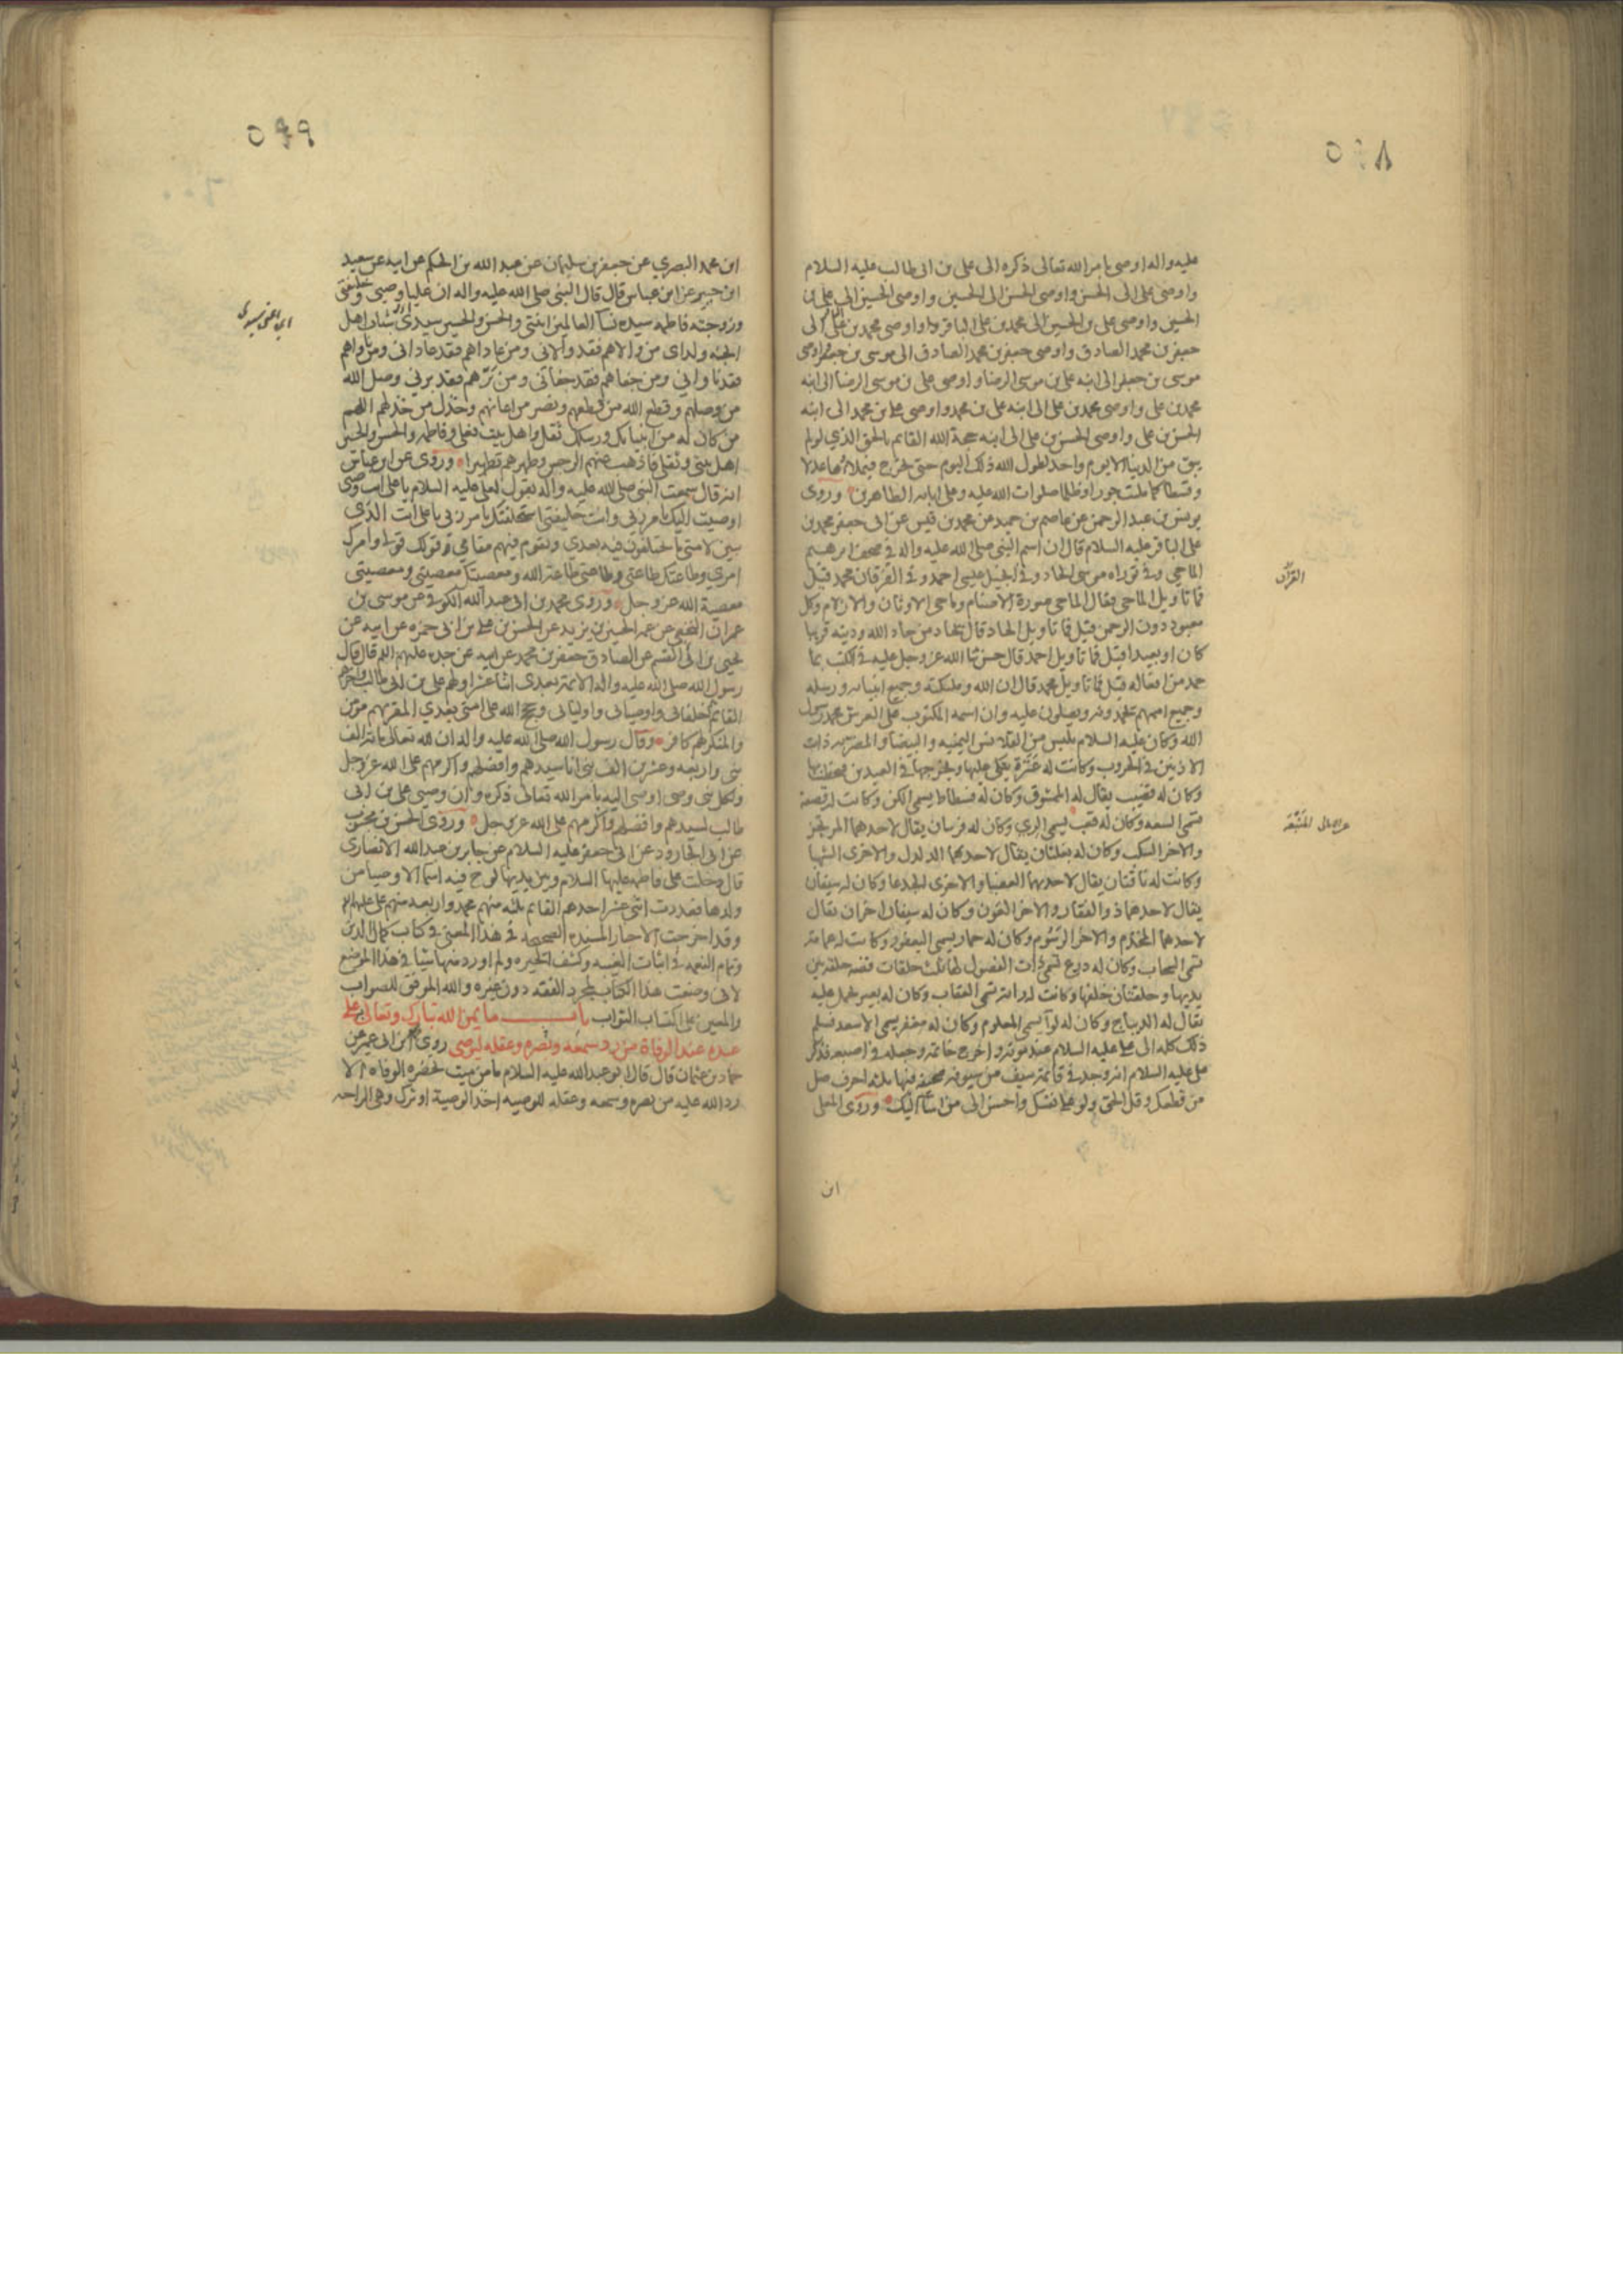 ٥٩٨
عليه واله اوصى بامر الله تعالى ذكره الى على بن ابى طالب عليه السلام
واوصى على الى الحسن واوصى الحسن الى الحسين واوصى الحسين الى على بن
الحسين واوصى على بن الحسين الى محمد بن على الباقر واوصى محمد بن على الى
جعفر بن محمد الصادق واوصى جعفر بن محمد الصادق الى موسى بن جعفر واوصى
موسى بن جعفر الى ابنه على بن موسى الرضا واوصى على بن موسى الرضا الى ابنه
محمد بن على واوصى محمد بن على الى ابنه على بن محمد واوصى على بن محمد الى ابنه
الحسن بن على واوصى الحسن بن على الى ابنه حجة الله القايم بالحق الذي لو لم
يبق من الدنيا الا يوم واحد لطول الله ذلك اليوم حتى يخرج فيملاها عدلا
وقسطا كما ملئت جورا وظلما صلوات الله عليه وعلى ابائه الطاهرين وروى
يونس بن عبد الرحمن عن عاصم بن حميد عن محمد بن قيس عن ابى جعفر محمد بن
على الباقر عليه السلام قال ان اسم النبى صلى الله عليه واله فى صحف ابرهيم
الماحي وفى توراه موسى الحاد وفى انجيل عيسى احمد وفى الفرقان محمد قيل
القرآن
فما تاويل الماحى فقال الماحى صورة الاصنام وماحى الاوثان والازلام وكل
معبود دون الرحمن قيل فما تاويل الحاد قال يحاد من حاد الله ودينه قريبا
كان او بعيدا قيل فما تاويل احمد قال حسن ثنا الله عز وجل عليه فى الكتب بما
حمد من افعاله قيل فما تاويل محمد قال ان الله وملئكته وجميع انبيائه ورسله
وجميع اممهم يحمدونه ويصلون عليه وان اسمه المكتوب على العرش محمد رسول
الله وكان عليه السلام يلبس من القلانس اليمنيه والبيضا والمضربه ذات
الاذنين فى الحروب وكانت له عنزة يتكى عليها ويخرجها فى العيدين فيخطب بها
وكان له قضيب يقال له الممشوق وكان له فسطاط يسمى الكن وكانت له قصعة
تسمى السعه وكان له قعب يسمى الرى وكان له فرسان يقال لاحدهما المرتجز
والاخر السكب وكان له بغلتان يقال لاحدهما الدلدل والاخرى الشهبا
وكانت له ناقتان يقال لاحدهما العضبا والاخرى الجدعا وكان له سيفان
يقال لاحدهما ذو الفقار والاخر العون وكان له سيفان اخران يقال
لاحدهما المخذم والاخر الرسوم وكان له حمار يسمى اليعفور وكانت له عمامة
تسمى السحاب وكان له درع تسمى ذات الفضول لها ثلث حلقات فضه حلقة بين
يديها وحلقتان خلفها وكانت له راية تسمى العقاب وكان له بعير يحمل عليه
يقال له الديباج وكان له لوآ يسمى المعلوم وكان له مغفر يسمى الاسعد فسلم
ذلك كله الى على عليه السلام عند موته واخرج خاتمه وجعله فى اصبعه فذكر
على عليه السلام انه وجد فى قائمة سيف من سيوفه صحيفه فيها ثلثه احرف صل
من قطعك وقل الحق ولو على نفسك واحسن الى من اسآء اليك وروى المعلى
ابن
٥٩٩
ابن محمد البصري عن جعفر بن سليمان عن عبد الله بن الحكم عن ابيه عن سعيد
ابن جبير عن ابن عباس قال قال النبى صلى الله عليه واله ان عليا وصيى وخليفتى
وزوجته فاطمه سيده نسآ العالمين ابنتى والحسن والحسين سيدى شباب اهل
الجنه ولداى من والاهم فقد والانى ومن عاداهم فقد عادانى ومن ناواهم
فقد ناوانى ومن جفاهم فقد جفانى ومن برهم فقد برنى وصل الله
من وصلهم وقطع الله من قطعهم ونصر من اعانهم وخذل من خذلهم اللهم
من كان له من انبيائك ورسلك ثقل واهل بيت فعلى وفاطمه والحسن والحسين
اهل بيتى وثقلى فاذهب عنهم الرجس وطهرهم تطهيرا وروى عن ابن عباس
انه قال سمعت النبى صلى الله عليه واله يقول لعلى عليه السلام يا على انت وصيى
اوصيت اليك بامر ربى وانت خليفتى استخلفتك بامر ربى يا على انت الذى
تبين لامتى ما يختلفون فيه بعدى وتقوم فيهم مقامى قولك قولى وامرك
امرى وطاعتك طاعتى وطاعتى طاعة الله ومعصيتك معصيتى ومعصيتى
معصية الله عز وجل وروى محمد بن ابى عبد الله الكوفى عن موسى بن
عمران النخعى عن عمه الحسين بن يزيد عن الحسن بن على بن ابى حمزه عن ابيه عن
يحيى بن ابى القسم عن الصادق جعفر بن محمد عن ابيه عن جده عليهم السلم قال قال
رسول الله صلى الله عليه واله الائمة بعدى اثنا عشر اولهم على بن ابى طالب واخرهم
القايم خلفائى واوصيائى واوليائى وحجج الله على امتى بعدي المقر بهم مومن
والمنكر لهم كافر وقال رسول الله صلى الله عليه واله ان لله تعالى مائة الف
نبى واربعه وعشرين الف نبى انا سيدهم وافضلهم واكرمهم على الله عز وجل
ولكل نبى وصى اوصى اليه بامر الله تعالى ذكره وان وصيى على بن ابى
طالب لسيدهم وافضلهم واكرمهم على الله عز وجل وروى الحسن بن محبوب
عن ابى الجارود عن ابى جعفر عليه السلام عن جابر بن عبد الله الانصارى
قال دخلت على فاطمه عليها السلام وبين يديها لوح فيه اسما الاوصيا من
ولدها فعددت اثنى عشر احدهم القائم ثلثه منهم محمد واربعه منهم على عليهم السلم
وقد اخرجت الاخبار المسنده الصحيحه فى هذا المعنى فى كتاب كمال الدين
وتمام النعمه فى اثبات الغيبه وكشف الحيره ولم اورد منها شيئا فى هذا الموضع
لانى وضعت هذا الكتاب لمجرد الفقه دون غيره والله الموفق للصواب
والمعين على اكتساب الثواب باب ما يمن الله تبارك وتعالى به على
عبده عند الوفاة من رد سمعه وبصره وعقله ليوصى روى ابن ابى عمير عن
حماد بن عثمان قال قال ابو عبد الله عليه السلام ما من ميت تحضره الوفاه الا
رد الله عليه من بصره وسمعه وعقله للوصيه اخذ الوصية او ترك وهى الراحه